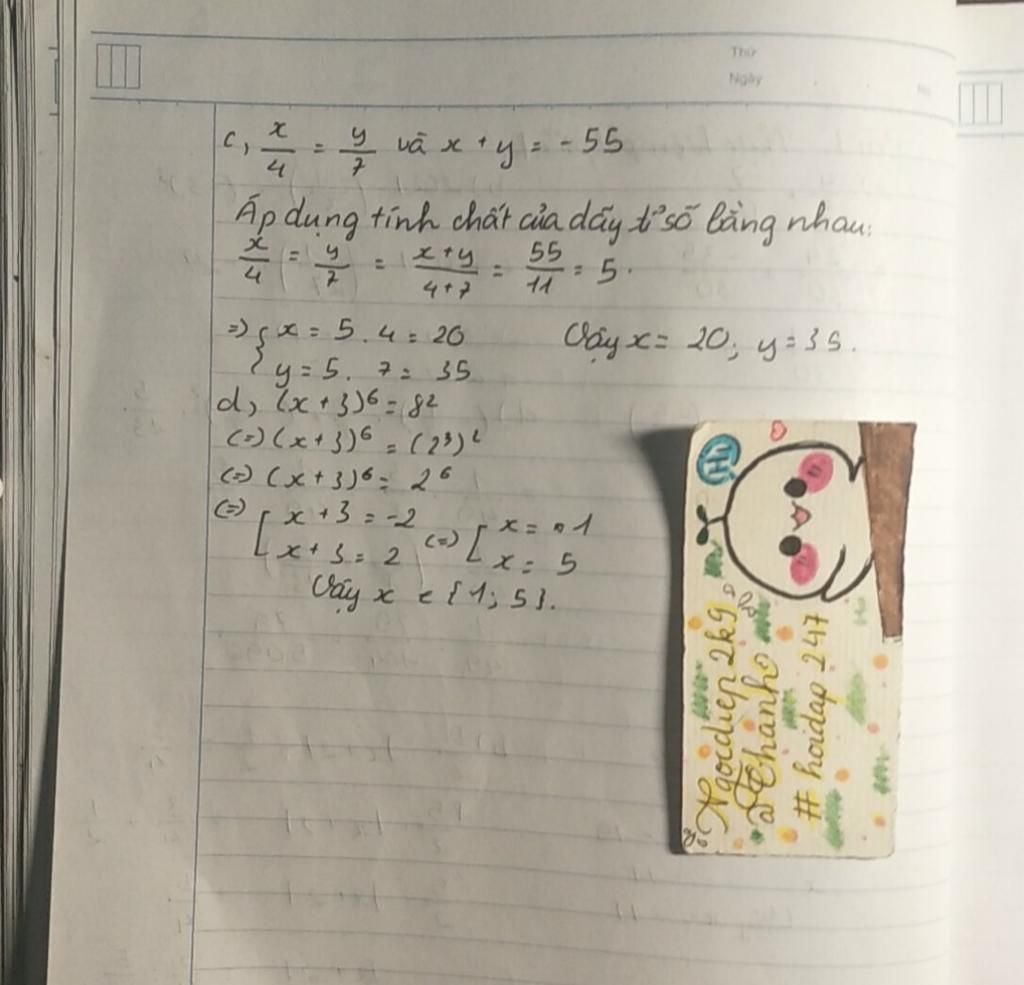 Thứ
Ngày
c, x/4 = y/7 và x + y = -55
Áp dụng tính chất của dãy tỉ số bằng nhau:
x/4 = y/7 = x+y/4+7 = 55/11 = 5.
=> { x = 5. 4 = 20
y = 5. 7 = 35
Vậy x = 20; y = 35.
d, (x + 3)⁶ = 8²
(=) (x + 3)⁶ = (2³)²
(=) (x + 3)⁶ = 2⁶
(=) [ x + 3 = -2 (=) [ x = 1
x + 3 = 2 x = 5
Vậy x ∈ {1; 5}.
Hi
Ngocdiep2kg
Thanh
# hoidap 247